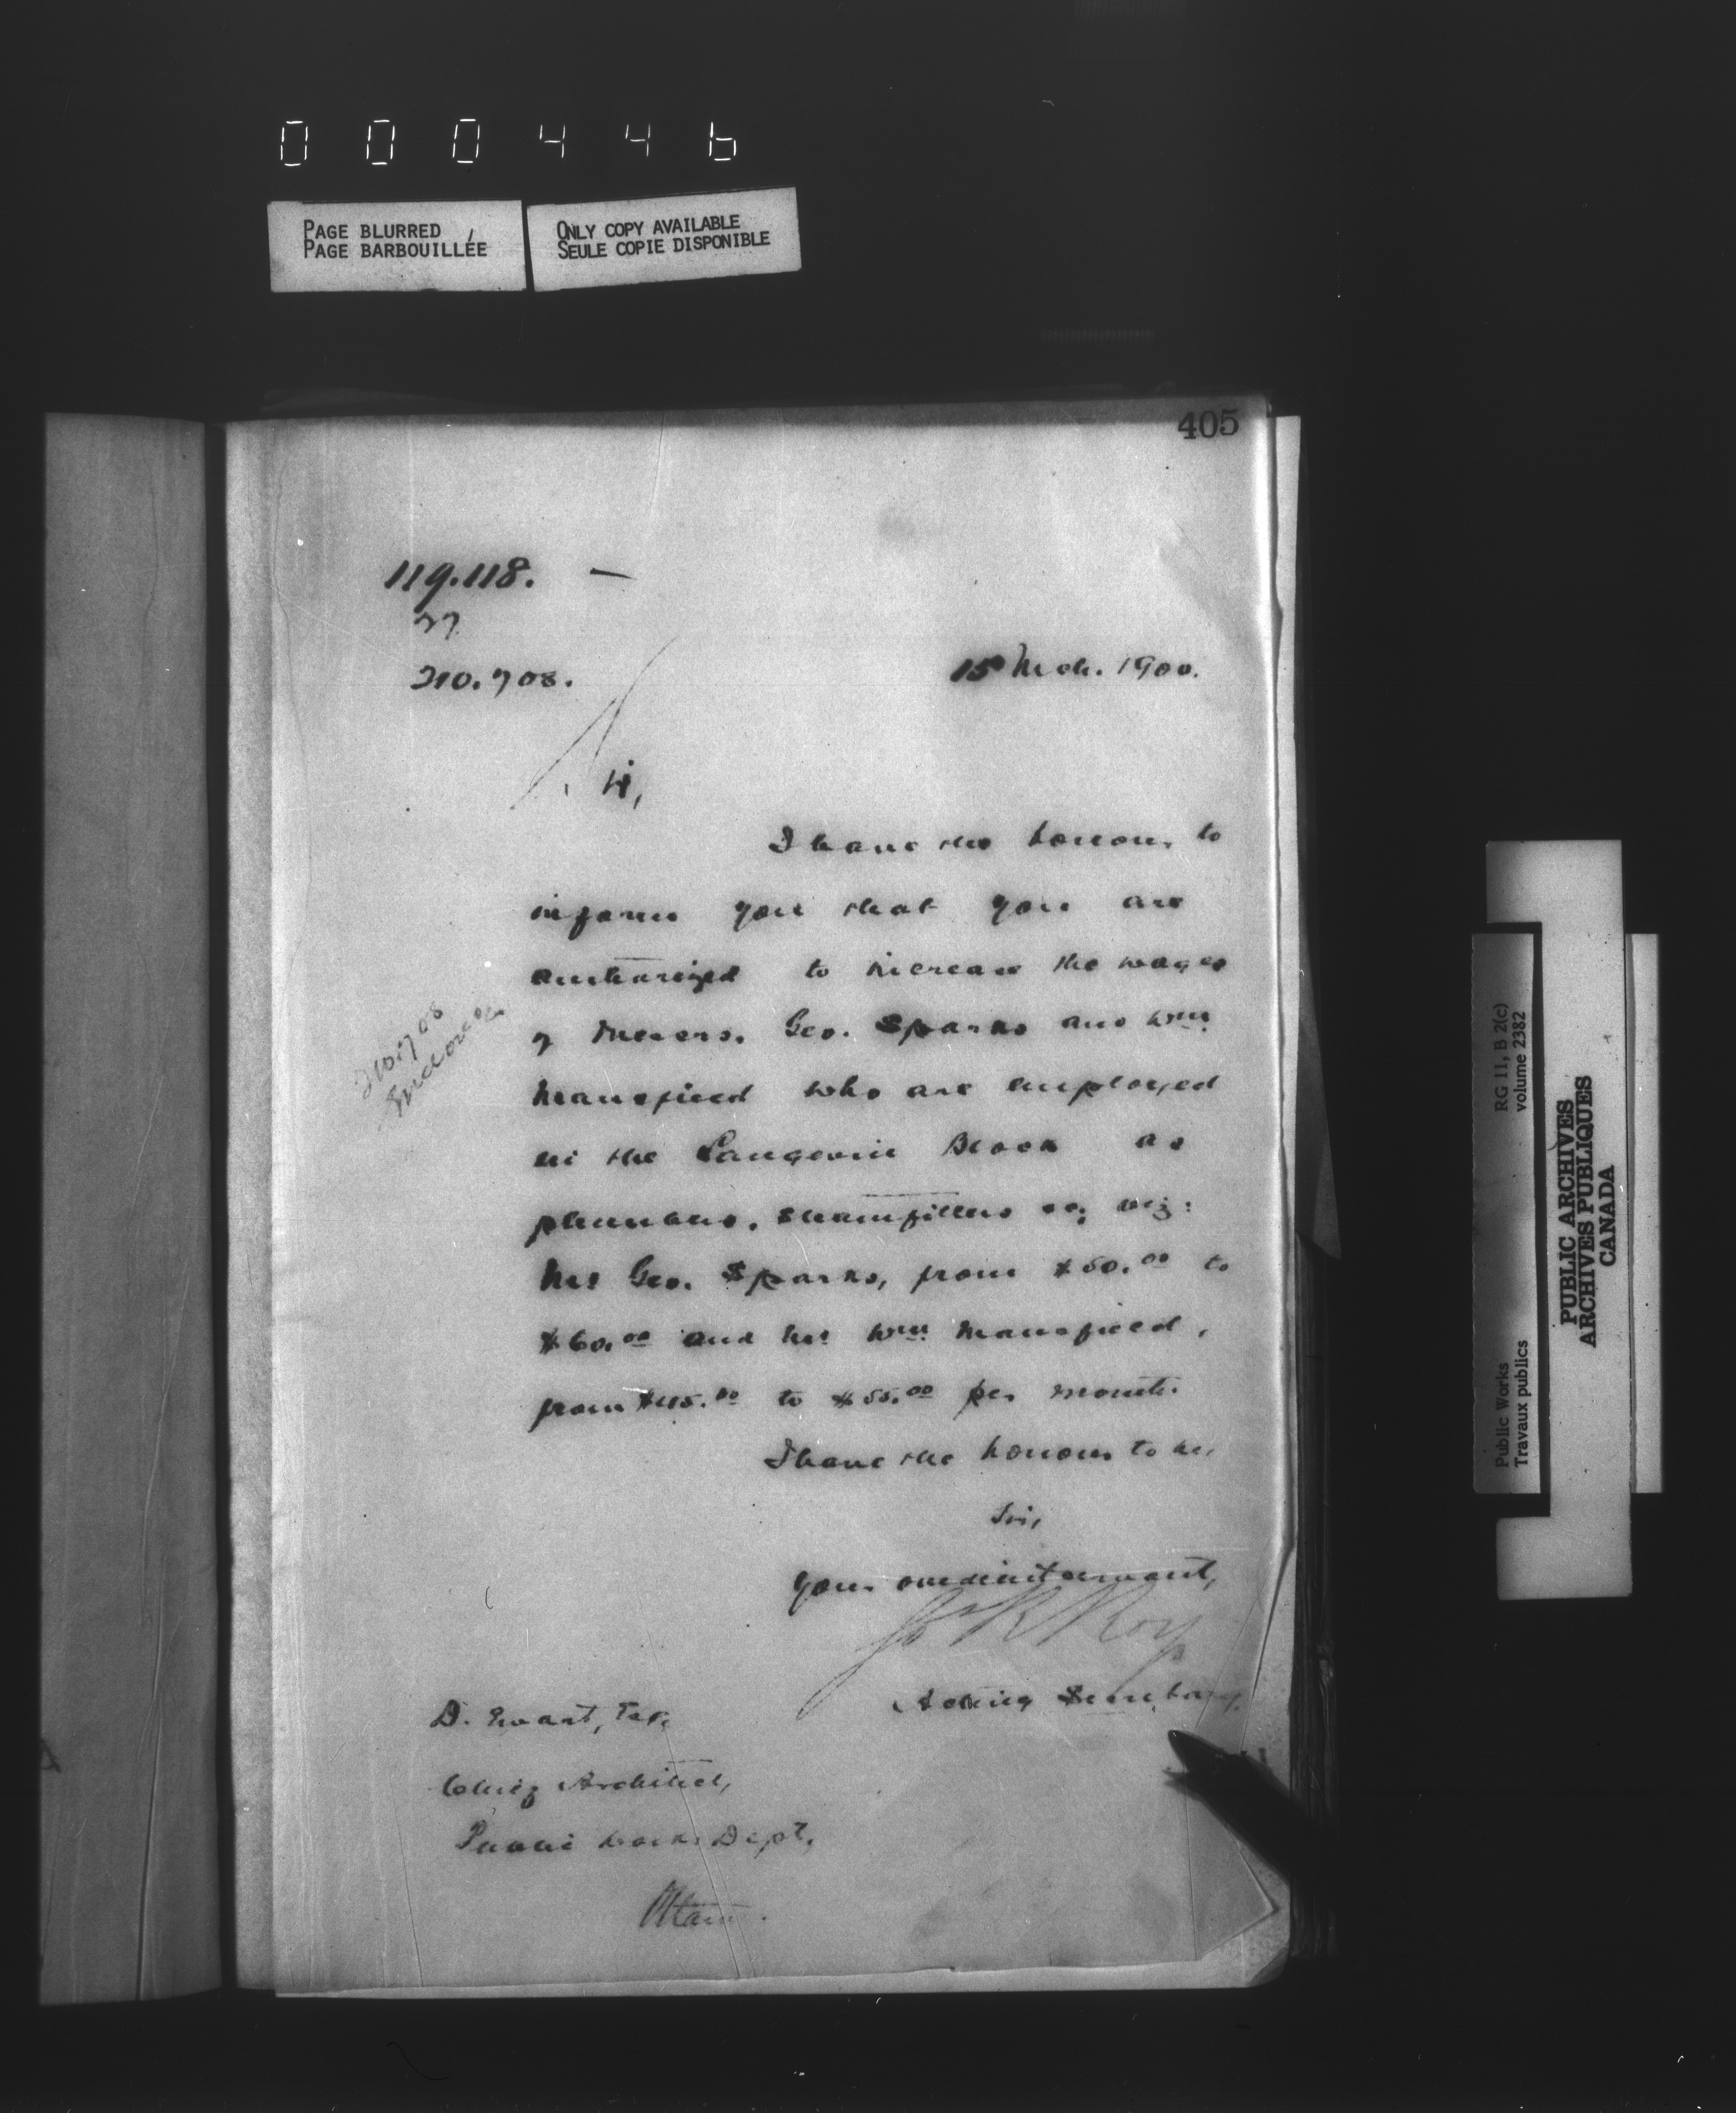 000446
PAGE BLURRED
PAGE BARBOUILLÉE
ONLY COPY AVAILABLE
SEULE COPIE DISPONIBLE
405
119.118. —
210.708.
15 Mch. 1900.
Sir,
I have the honour to
inform you that you are
authorized to increase the wages
of Messrs. Geo. Sparks and Wm.
Mansfield who are employed
in the Langevin Block as
plumbers, steamfitters &c; viz:
Mr Geo. Sparks, from $50.00 to
$60.00 and Mr Wm Mansfield,
from $45.00 to $55.00 per month.
I have the honour to be,
Sir,
Your obedient servant,
J R Roy
Acting Secretary.
210.708
Enclosed
D. Ewart, Esq.
Chief Architect,
Public Works Dept,
Ottawa.
RG 11, B 2(c)
volume 2382
Public Works
Travaux publics
PUBLIC ARCHIVES
ARCHIVES PUBLIQUES
CANADA